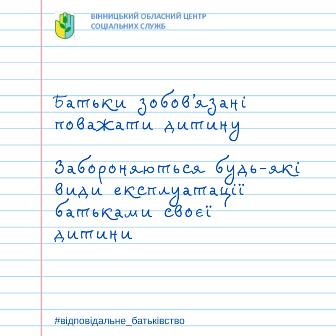 ВІННИЦЬКИЙ ОБЛАСНИЙ ЦЕНТР
СОЦІАЛЬНИХ СЛУЖБ
Батьки зобов'язані
поважати дитину
Забороняються будь-які
види експлуатації
батьками своєї
дитини
#відповідальне_батьківство